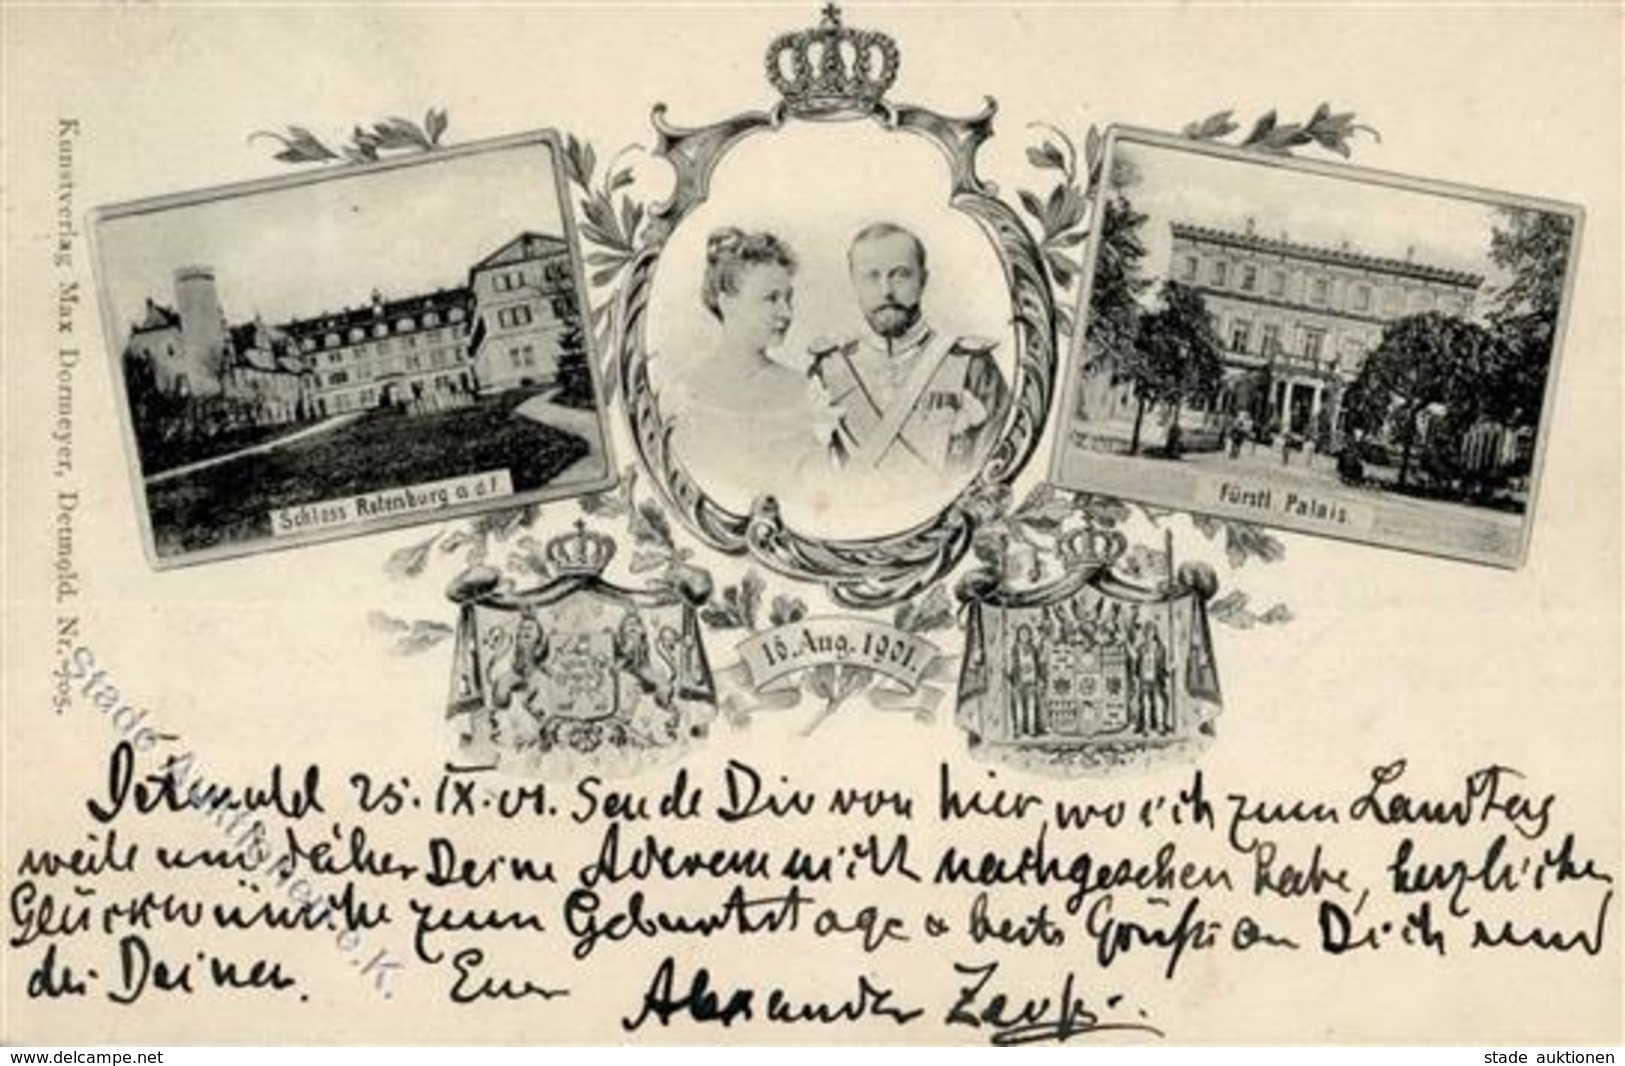 Kunstverlag Max Dormeyer, Detmold. Nr.
Schloss Rotenburg a.d.F.
Fürstl. Palais
16. Aug. 1901.
Stade Auktionen e.K.
Detmold 25. IX. 01. Sende Dir von hier, wo ich zum Landtag
weile und daher Deine nicht nachgesehen habe, herzlichen
Glückwünsche zum Geburtstage & beste Grüße an Dich und
die Deinen. Euer Alexander
www.delcampe.net
stade auktionen